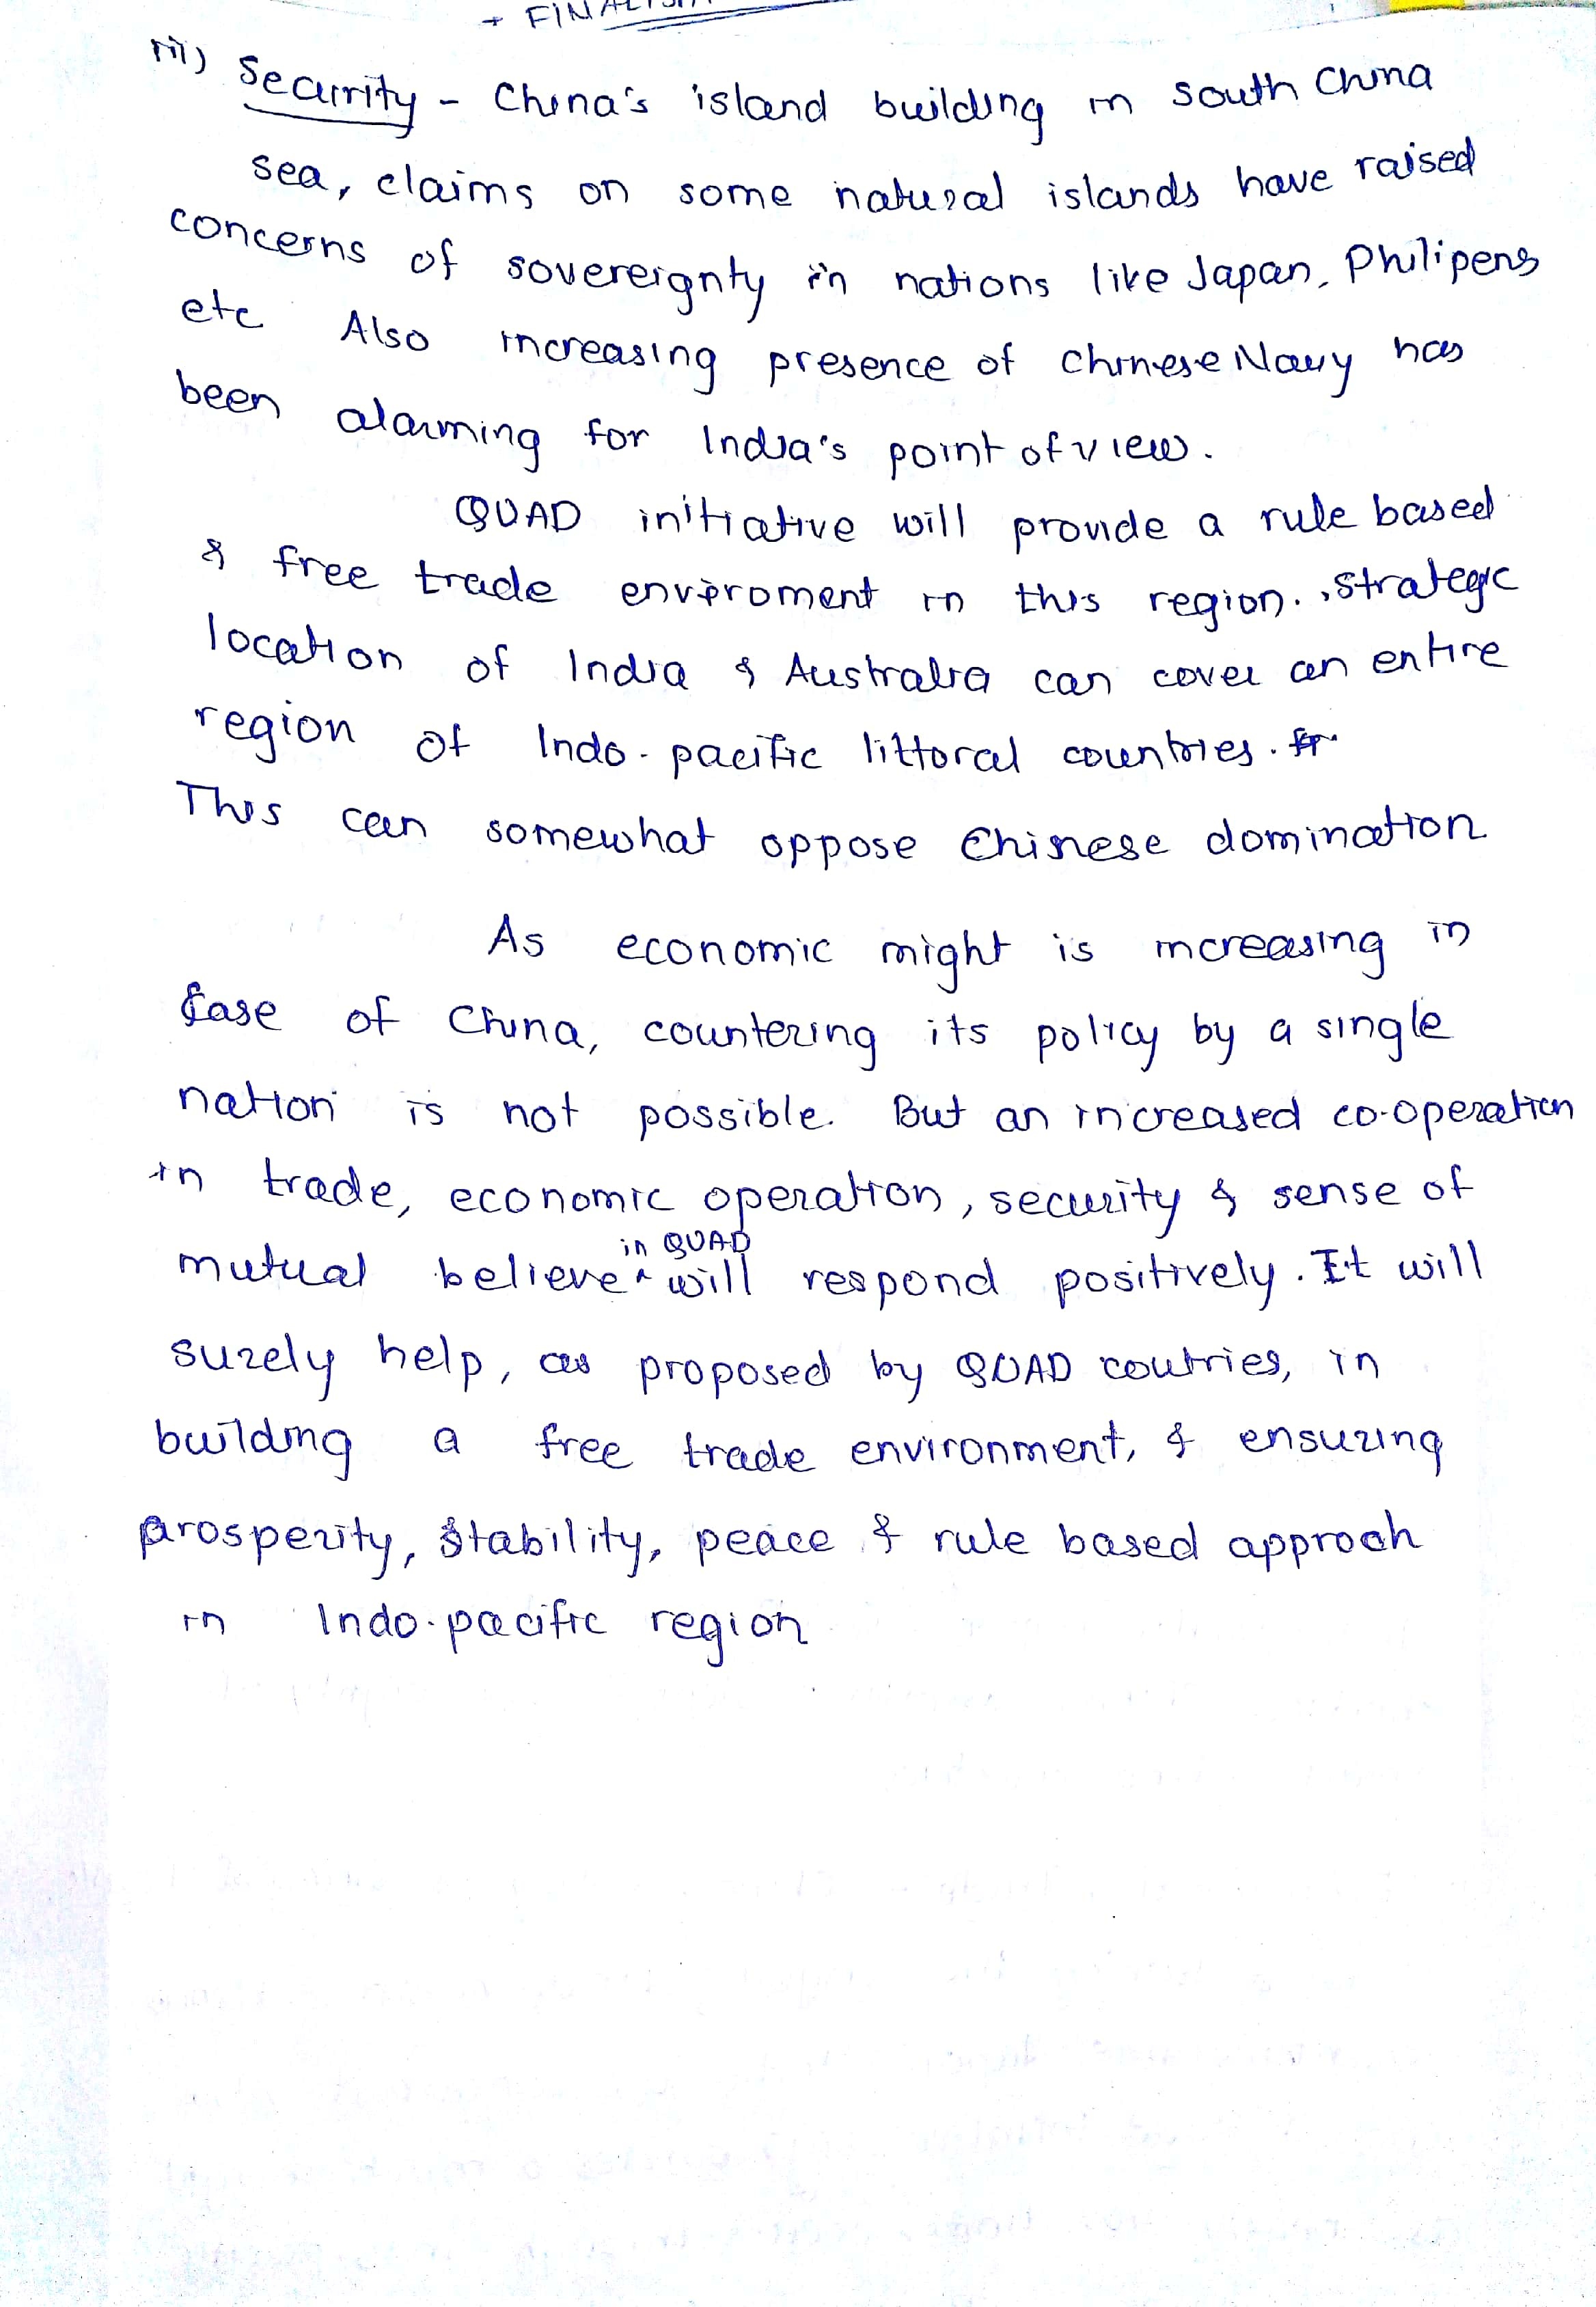 iii) Security - China's island building in south China
sea, claims on some natural islands have raised
concerns of sovereignty in nations like Japan, Philipens
etc Also increasing presence of Chinese Navy has
been alarming for India's point of view.
QUAD initiative will provide a rule based
& free trade enviroment in this region. strategic
location of India & Australia can cover an entire
region of Indo-pacific littoral countries.
This can somewhat oppose Chinese domination
As economic might is increasing in
case of China, countering its policy by a single
nation is not possible. But an increased co-operation
in trade, economic operation, security & sense of
mutual believe in QUAD will respond positively. It will
surely help, as proposed by QUAD coutries, in
building a free trade environment, & ensuring
prosperity, stability, peace & rule based approch
in Indo-pacific region